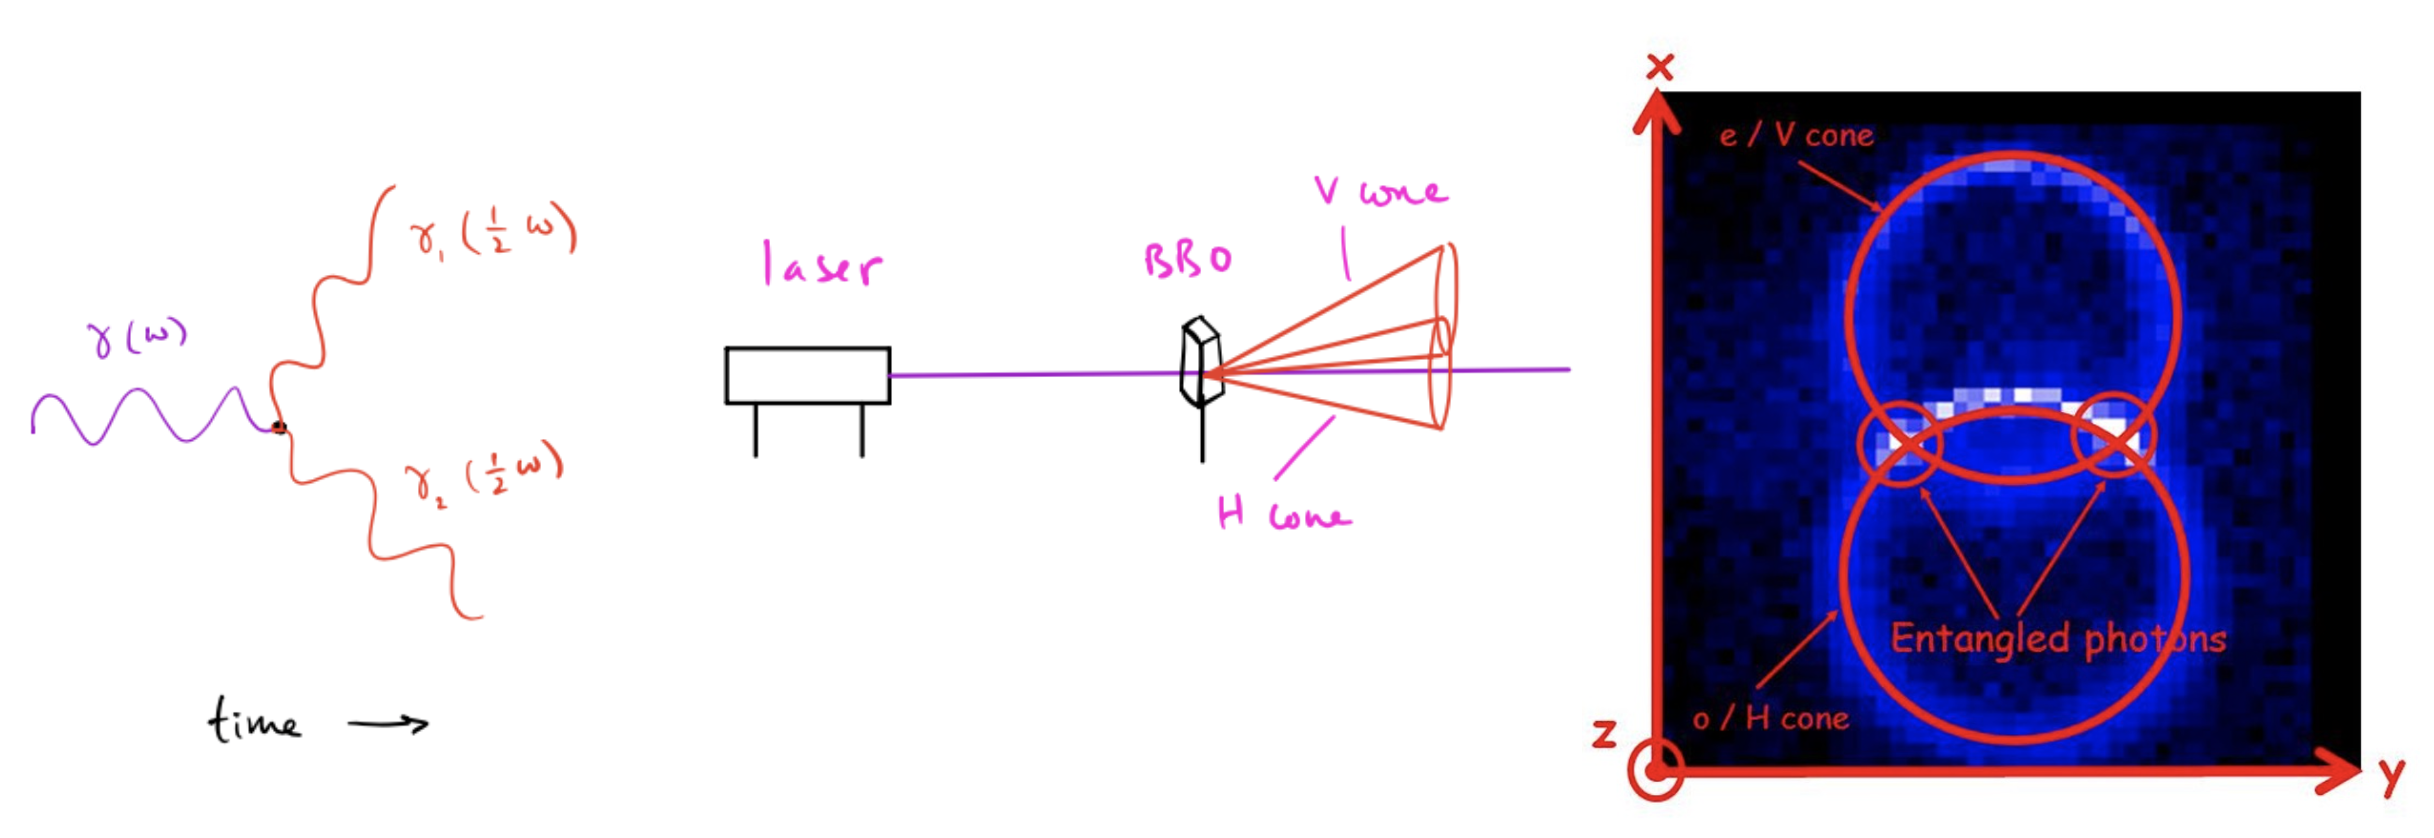 γ(ω)
γ₁ (½ ω)
γ₂ (½ ω)
time →
laser
BBO
V cone
H cone
x
e / V cone
Entangled photons
o / H cone
z
y